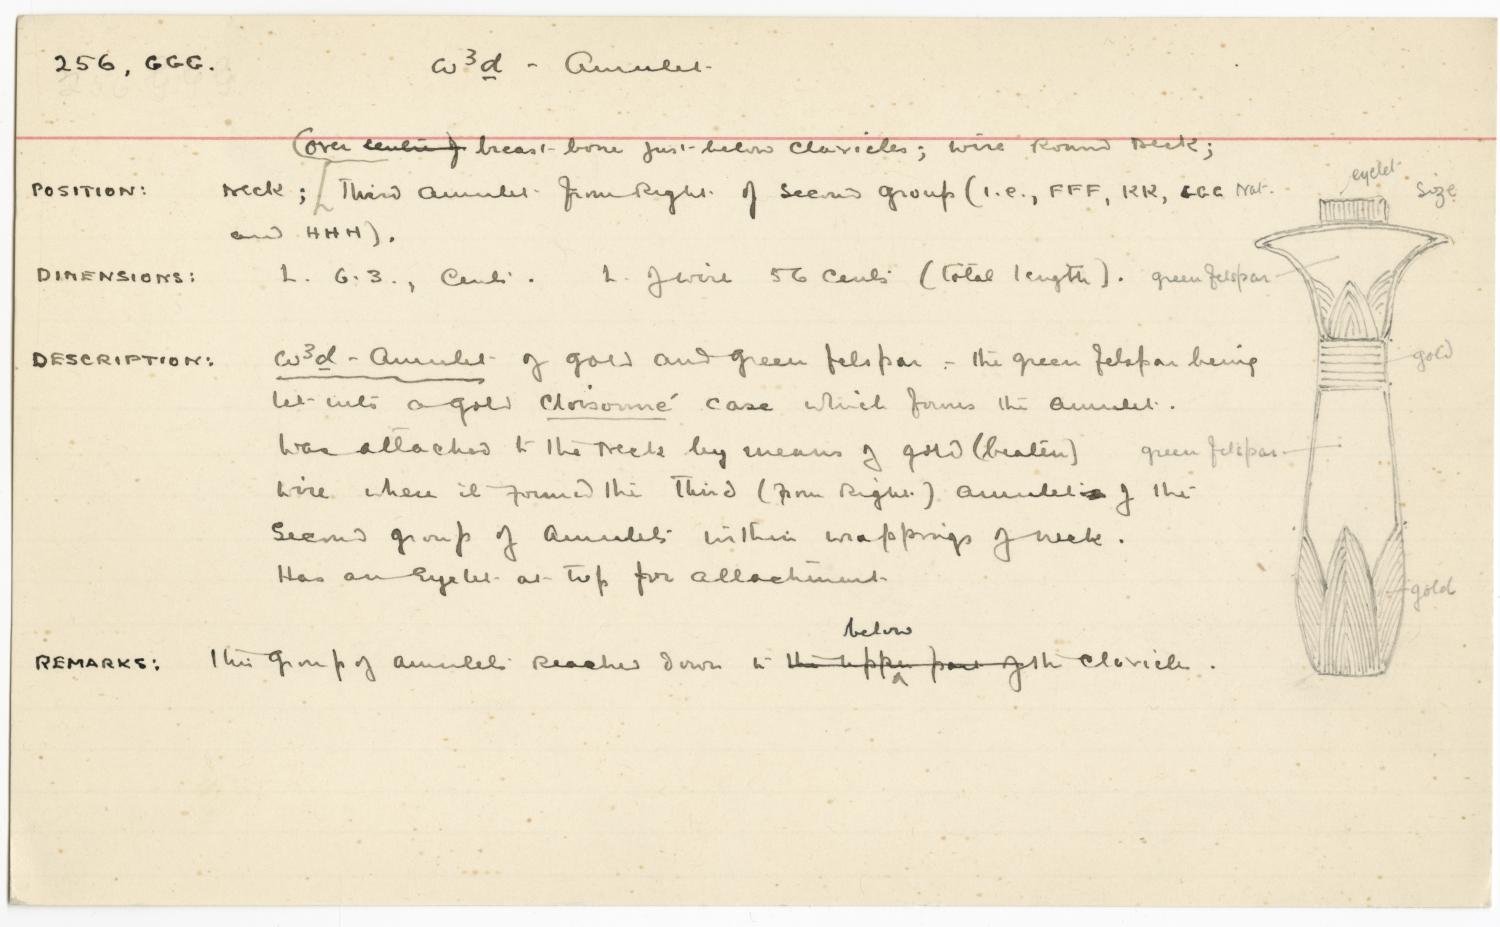 256, GGG. w³ḏ - Amulet
(over centre of breast-bone just below clavicles; wire round neck;
POSITION: Neck; [Third amulet from Right of second group (i.e., FFF, KK, GGG
and HHH).
DIMENSIONS: L. 6.3., Cents. L. of wire 56 cents (total length).
DESCRIPTION: w³ḏ - Amulet of gold and green felspar - the green felspar being
let into a gold cloisonné case which forms the amulet.
Was attached to the neck by means of gold (beaten)
wire where it formed the third (from Right) amulet of the
second group of amulets within wrappings of neck.
Has an Eyelet at top for attachment
below
REMARKS: This group of amulets reached down to the upper part of the clavicle.
eyelet
Nat. Size
green felspar
gold
green felspar
gold